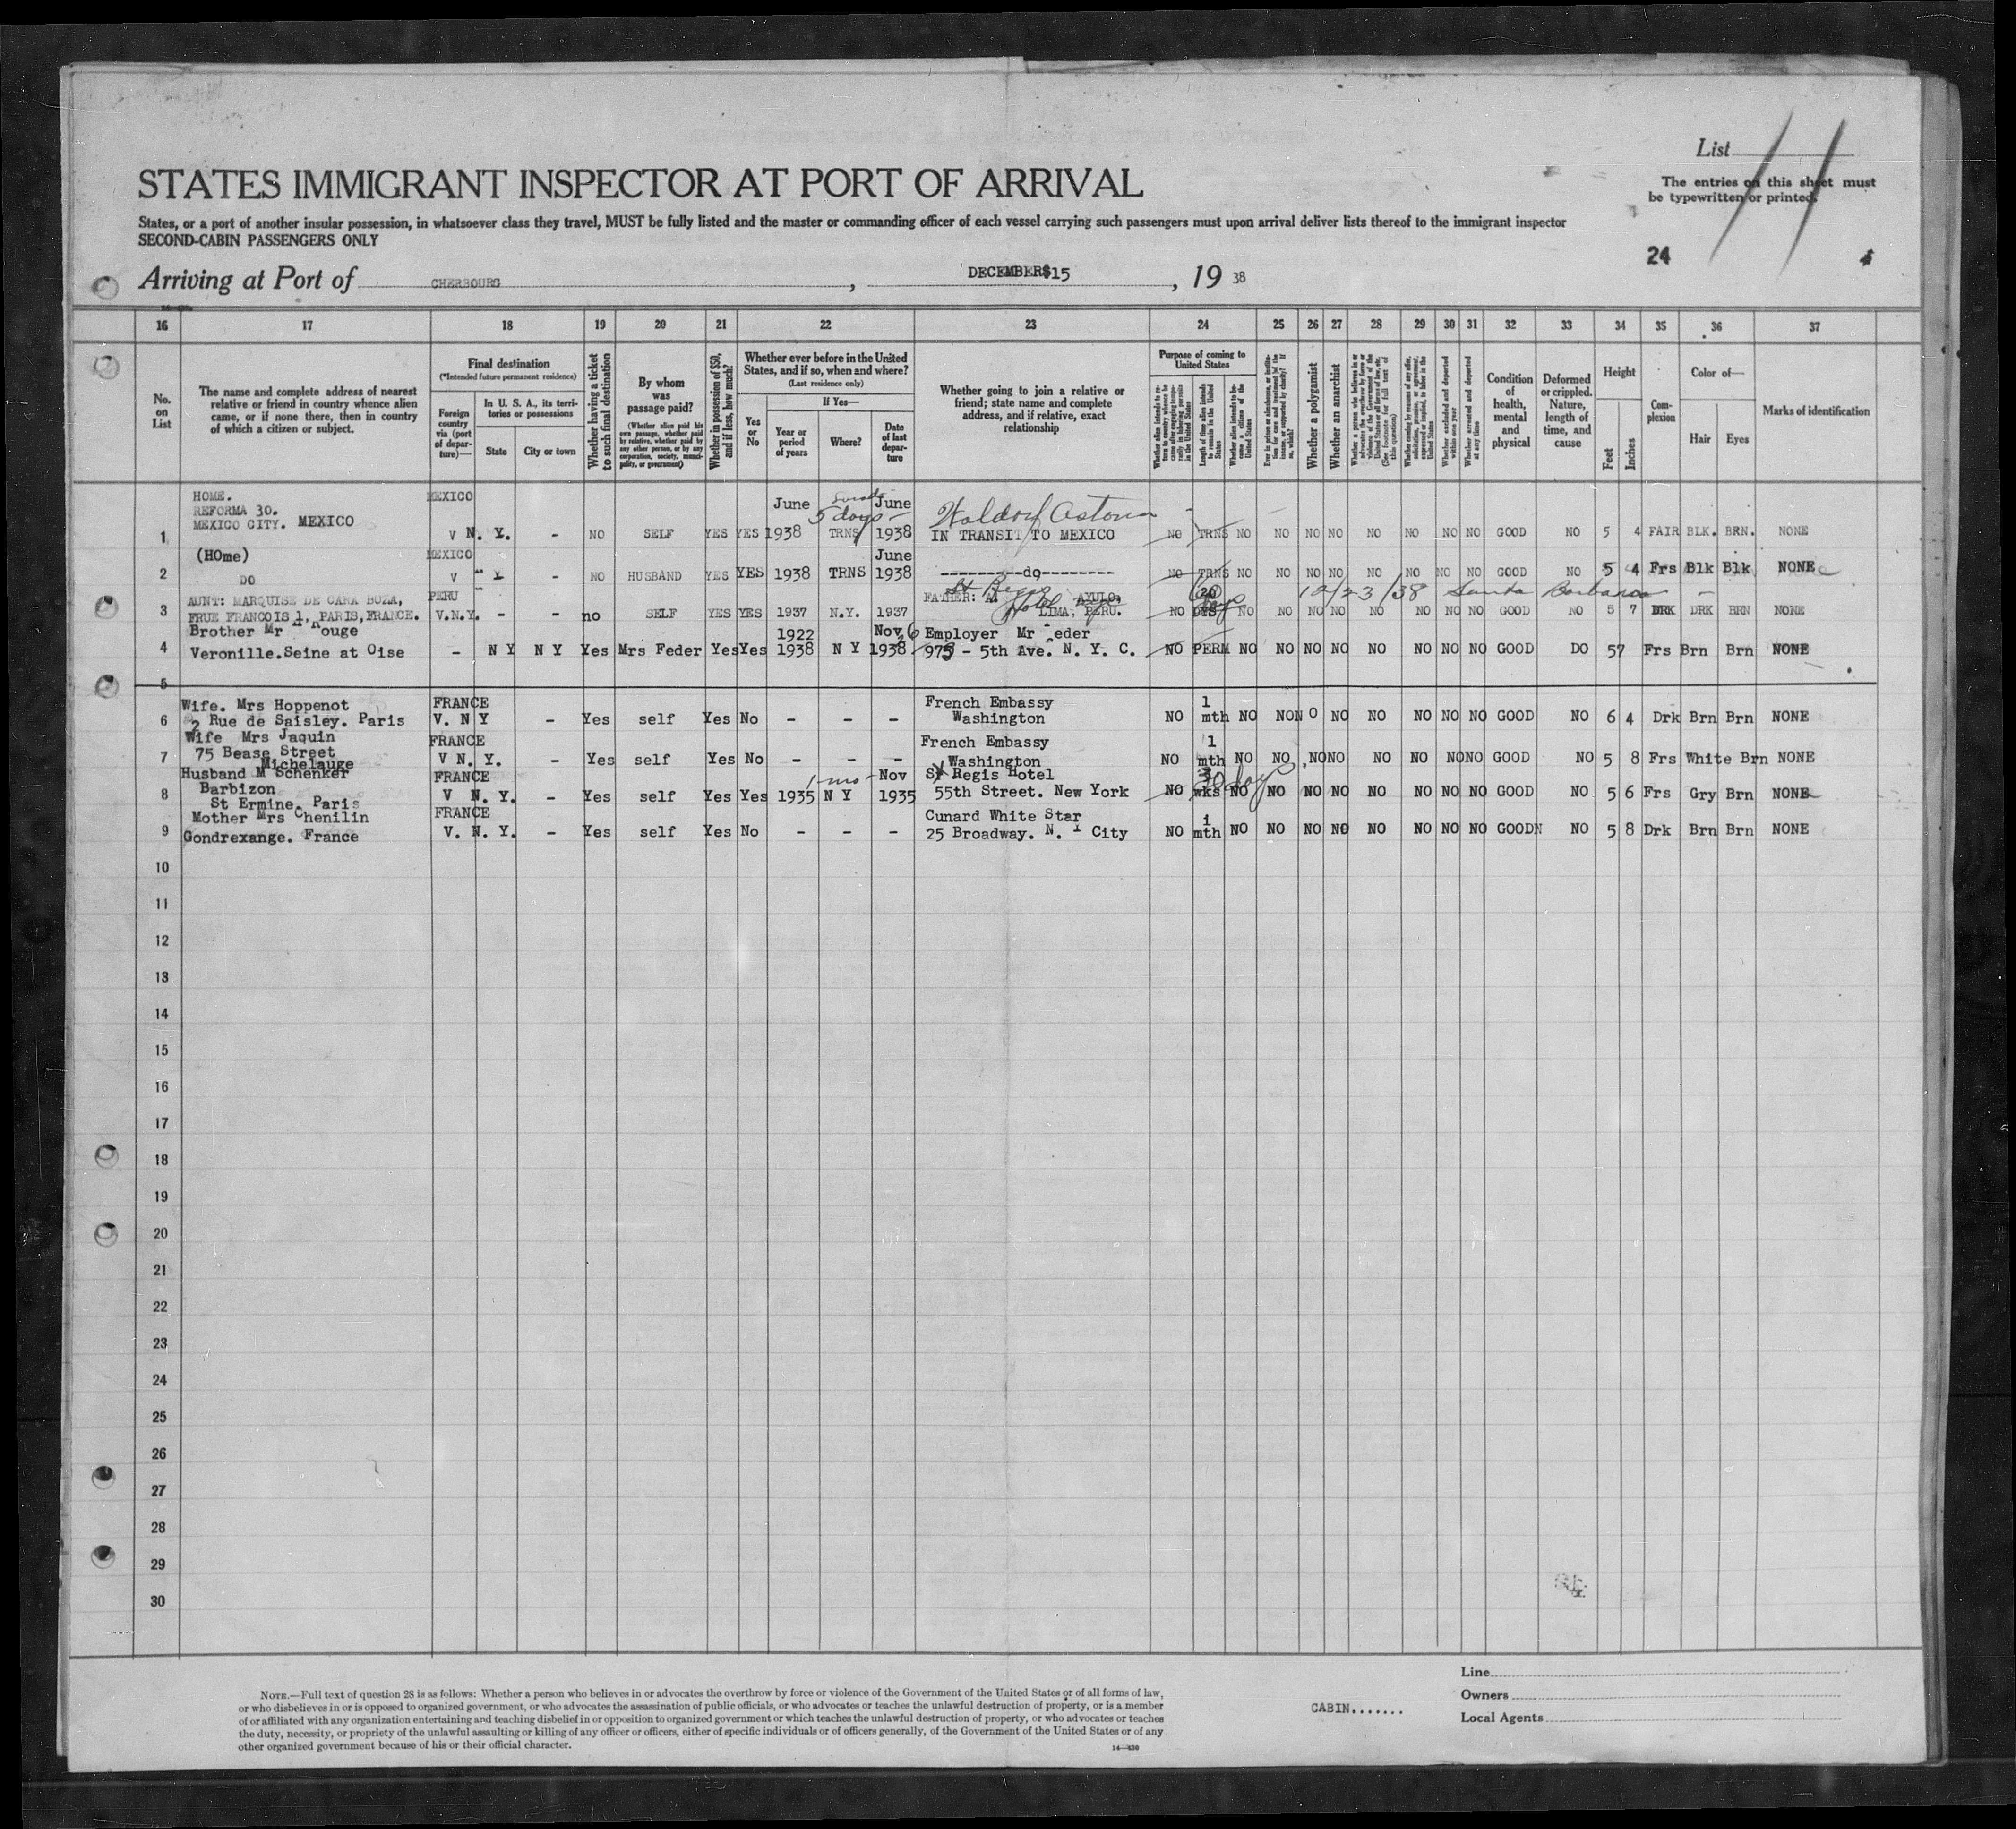 List
The entries on this sheet must
be typewritten or printed.
STATES IMMIGRANT INSPECTOR AT PORT OF ARRIVAL
States, or a port of another insular possession, in whatsoever class they travel, MUST be fully listed and the master or commanding officer of each vessel carrying such passengers must upon arrival deliver lists thereof to the immigrant inspector
SECOND-CABIN PASSENGERS ONLY
24
Arriving at Port of CHERBOURG, DECEMBER 15, 19 38
16 17 18 19 20 21 22 23 24 25 26 27 28 29 30 31 32 33 34 35 36 37
No. on List
The name and complete address of nearest
relative or friend in country whence alien
came, or if none there, then in country
of which a citizen or subject.
Final destination
(*Intended future permanent residence)
Foreign country via (port of departure)—
In U. S. A., its territories or possessions
State
City or town
Whether having a ticket to such final destination
By whom was passage paid?
(Whether alien paid his own passage, whether paid by relative, whether paid by any other person, or by any corporation, society, municipality, or government)
Whether in possession of $50, and if less, how much?
Whether ever before in the United States, and if so, when and where?
(Last residence only)
Yes or No
If Yes—
Year or period of years
Where?
Date of last departure
Whether going to join a relative or
friend; state name and complete
address, and if relative, exact
relationship
Purpose of coming to United States
Whether alien intends to return to country whence he came after engaging temporarily in laboring pursuits in the United States
Length of time alien intends to remain in the United States
Whether alien intends to become a citizen of the United States
Whether a polygamist
Whether an anarchist
Whether arrested and deported at any time
Condition of health, mental and physical
Deformed or crippled. Nature, length of time, and cause
Height
Feet
Inches
Complexion
Color of—
Hair
Eyes
Marks of identification
HOME. MEXICO June June
REFORMA 30. 5 days Waldorf Astoria
MEXICO CITY. MEXICO
1 V N. Y. - NO SELF YES YES 1938 TRNS 1938 IN TRANSIT TO MEXICO NO TRNS NO NO NO NO NO NO NO NO GOOD NO 5 4 FAIR BLK. BRN. NONE
(HOme) MEXICO June
2 DO V " Y - NO HUSBAND YES YES 1938 TRNS 1938 --------do-------- NO TRNS NO NO NO NO NO NO NO NO GOOD NO 5 4 Frs Blk Blk NONE
St Regis Hotel 12/23/38 Santa Barbara
AUNT: MARQUISE DE CARA BOZA, PERU FATHER: A. AYULO, 20
3 FRUE FRANCOIS 1, PARIS, FRANCE. V.N.Y. - - no SELF YES YES 1937 N.Y. 1937 LIMA, PERU. NO DYS NO NO NO NO NO NO NO NO GOOD NO 5 7 DRK DRK BRN NONE
Brother Mr Rouge 1922 Nov 6 Employer Mr Feder
4 Veronille.Seine at Oise - N Y N Y Yes Mrs Feder Yes Yes 1938 N Y 1938 975 - 5th Ave. N. Y. C. NO PERM NO NO NO NO NO NO NO NO GOOD DO 57 Frs Brn Brn NONE
5
Wife. Mrs Hoppenot FRANCE French Embassy 1
6 2 Rue de Saisley. Paris V. N Y - Yes self Yes No - - - Washington NO mth NO NO N O NO NO NO NO NO GOOD NO 6 4 Drk Brn Brn NONE
Wife Mrs Jaquin FRANCE French Embassy 1
7 75 Bease Street V N. Y. - Yes self Yes No - - - Washington NO mth NO NO NO NO NO NO NO NO GOOD NO 5 8 Frs White Brn NONE
Michelauge
Husband M Schenker FRANCE 1 mo Nov St Regis Hotel 3 30 days
8 Barbizon V N. Y. - Yes self Yes Yes 1935 N Y 1935 55th Street. New York NO wks NO NO NO NO NO NO NO NO GOOD NO 5 6 Frs Gry Brn NONE
St Ermine. Paris
Mother Mrs Chenilin FRANCE Cunard White Star 1
9 Gondrexange. France V. N. Y. - Yes self Yes No - - - 25 Broadway. N. Y City NO mth NO NO NO NO NO NO NO NO GOODN NO 5 8 Drk Brn Brn NONE
10
11
12
13
14
15
16
17
18
19
20
21
22
23
24
25
26
27
28
29
30
NOTE.—Full text of question 28 is as follows: Whether a person who believes in or advocates the overthrow by force or violence of the Government of the United States or of all forms of law,
or who disbelieves in or is opposed to organized government, or who advocates the assassination of public officials, or who advocates or teaches the unlawful destruction of property, or is a member
of or affiliated with any organization entertaining and teaching disbelief in or opposition to organized government or which teaches the unlawful destruction of property, or who advocates or teaches
the duty, necessity, or propriety of the unlawful assaulting or killing of any officer or officers, either of specific individuals or of officers generally, of the Government of the United States or of any
other organized government because of his or their official character.
CABIN.......
Line
Owners
Local Agents